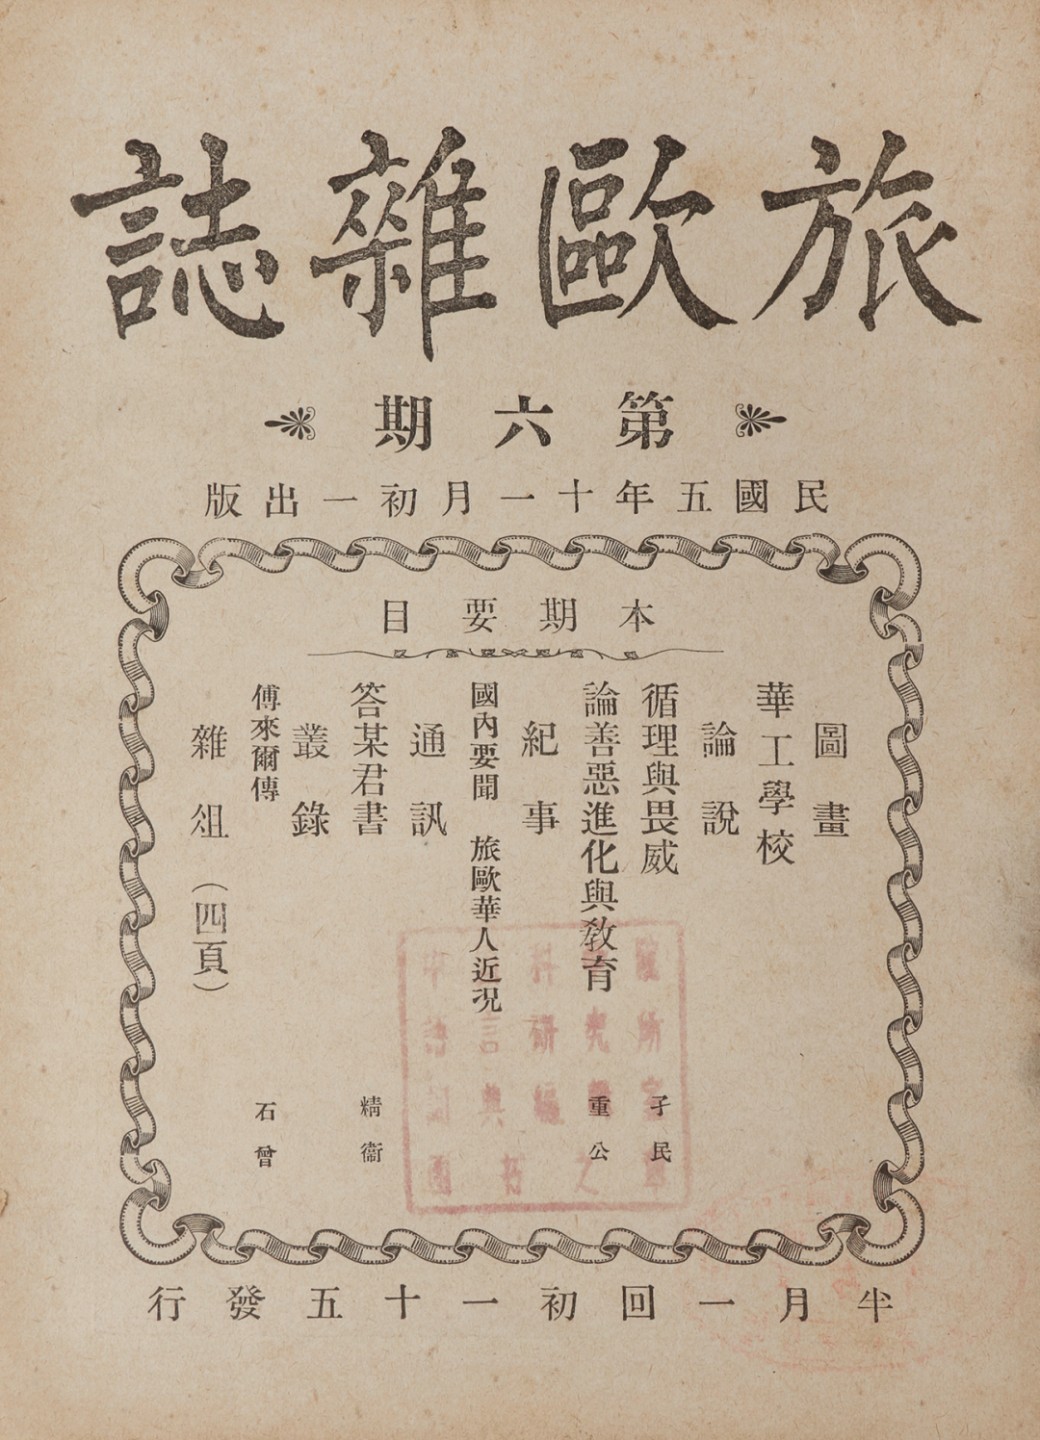 旅歐雜誌
第六期
民國五年十一月初一出版
本期要目
圖畫
華工學校
論說
循理與畏威 孑民
論善惡進化與教育 重公
紀事
國內要聞 旅歐華人近况
通訊
答某君書 精衞
叢錄
傅來爾傳 石曾
雜俎（四頁）
半月一回初一十五發行